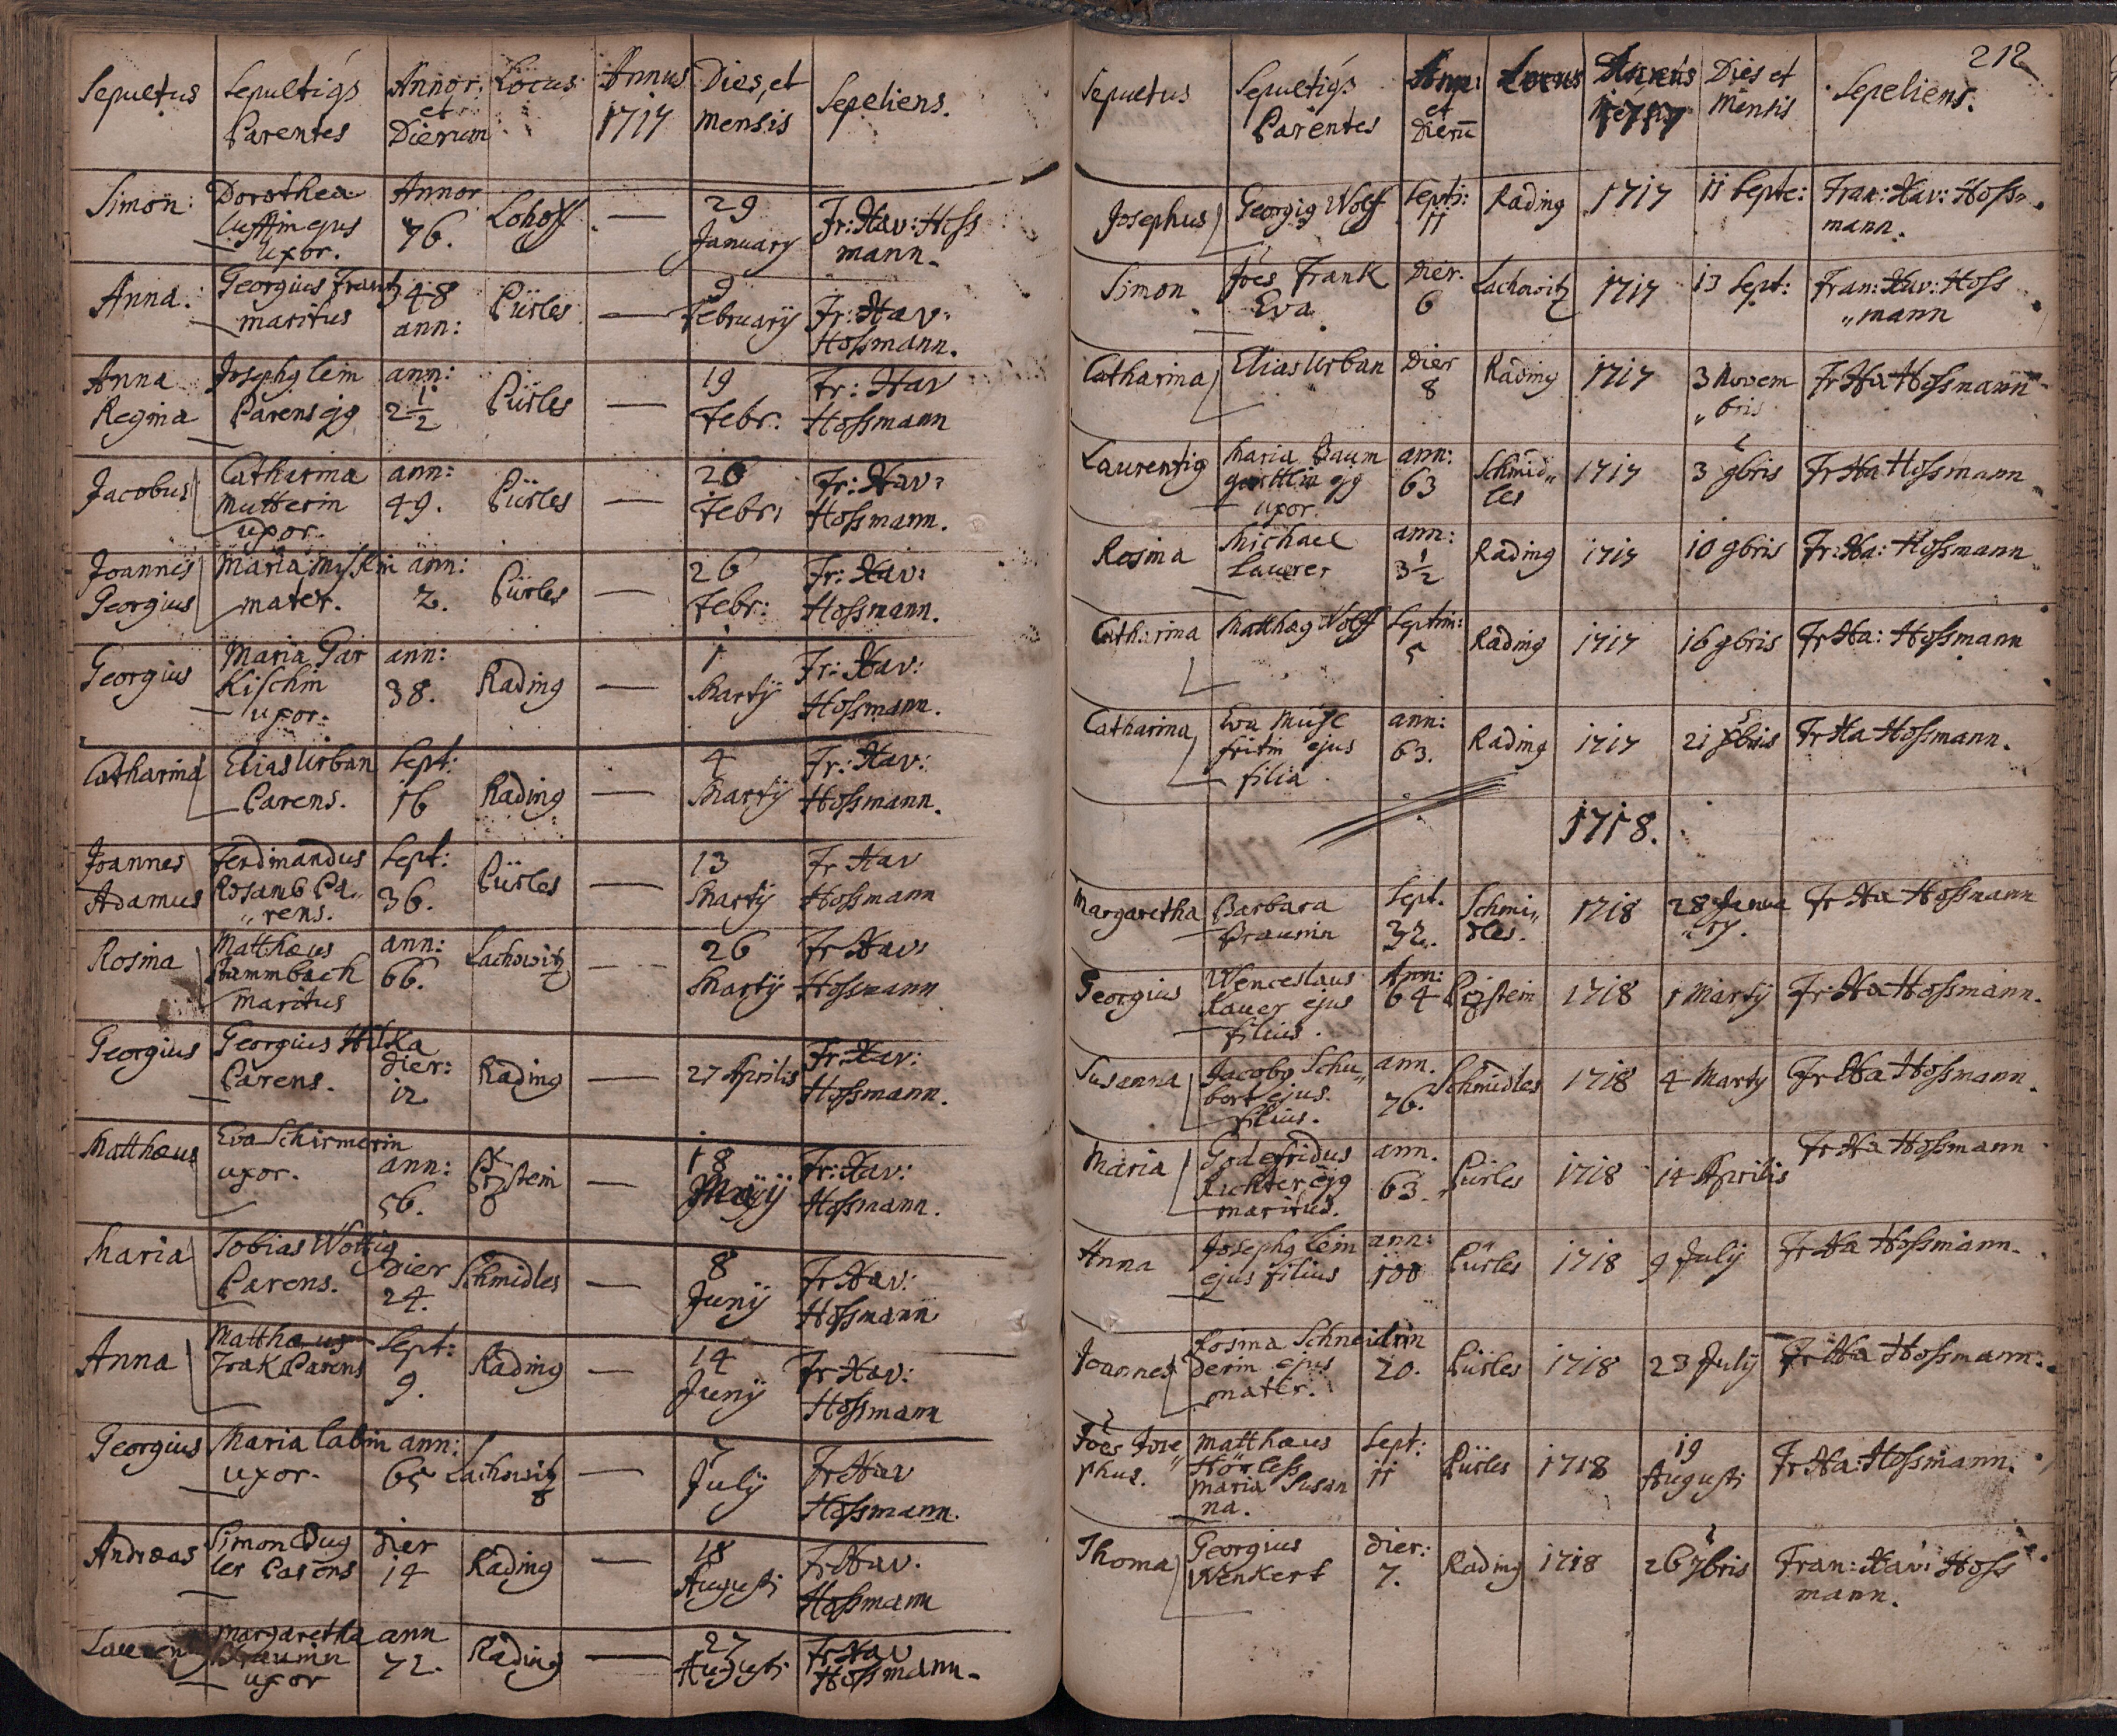 Sepultus Sepultiqs Parentes Annor: et Dierum Locus Annus 1717 Dies, et Mensis Sepeliens.
Simon: Dorothea ejus uxor. Annor 76. Lohoff — 29 January Fr: Xav: Hoss mann.
Anna: Georgius Frantz maritus 48 ann: Pürles — 9 February Fr: Xav: Hossmann.
Anna Regina Josephg lem Parens ejg ann: 2 1/2 Pürles — 19 Febr: Fr: Xav Hossmann
Jacobus Catharina Mutterin uxor. ann: 49. Pürles — 26 Febr: Fr: Xav: Hossmann.
Joannis Georgius Maria mater. ann: 2. Pürles — 26 Febr: Fr: Xav: Hossmann.
Georgius Maria Gar Kischin uxor. ann: 38. Rading — 1 Martÿ Fr: Xav: Hossmann.
Catharina Elias Urban Parens. Sept: 16 Rading — 4 Martÿ Fr: Xav: Hossmann.
Joannes Adamus Ferdinandus Rosamb Pa„ „rens. Sept: 36. Pürles — 13 Martÿ Fr Xav Hossmann
Rosina Matthæus Stammbach maritus ann: 66. Lachowitz — 26 Martÿ Fr Xav: Hossmann
Georgius Georgius Hilka Parens. Dier: 12 Rading — 27 Aprilis Fr: Xav: Hossmann.
Matthæus Eva Schirmerin uxor. ann: 56. — 18 Maÿ Fr: Xav: Hossmann.
Maria Tobias Wottig Parens. Dier 24. Schmidles — 8 Junÿ Fr Xav: Hossmann
Anna Matthæus Frak Parens Sept: 9. Rading — 14 Junÿ Fr Xav: Hossmann
Georgius Maria labin uxor. ann: 65 Lachowitz — 7 Julÿ Fr Xav Hossmann.
Andreas Simon Dug ler Parens Dier 14 Rading — 18 Augusti Fr Xav. Hossmann
Margaretha Braunin uxor ann 72. Rading — 27 Augusti Fr Xav Hossmann.
212
Sepultus Sepultiqs Parentes Ann: et Dierū Locus Annus 1717 Dies et Mensis Sepeliens.
Josephus Georgig Wolf Septi: 11 Rading 1717 11 Septe: Fran: Xav: Hoss= mann.
Simon Joes Frank Eva Dier. 6 Lachowitz 1717 13 Sept: Fran: Xav: Hoss „mann
Catharina Elias Urban Dier 8 Rading 1717 3 Novem „bris Fr Xa Hossmann
Laurentig Maria Baum ejg uxor. ann: 63 Schmid„ les 1717 3 9bris Fr Xa Hossmann
Rosina Michael Lauerer ann: 3 1/2 Rading 1717 10 9bris Fr: Xa: Hossmann
Catharina Matthæg Wolf Septim: 5 Rading 1717 16 9bris Fr Xa: Hossmann
Catharina Eva ejus filia ann: 63. Rading 1717 21 Fr Xa Hossmann.
1718.
Margaretha Barbara Braunin Sept. 32. Schmi„ dles. 1718 28 Janua „ry. Fr Xa Hossmann
Georgius Wenceslaus Rauer ejus filius. Ann: 64 1718 1 Martÿ Fr: Xa Hossmann.
Susanna Jacobg Schu„ bert ejus. filius. ann. 76. Schmidles 1718 4 Marty Fr Xa Hossmann.
Maria Godefridus Richter ejg maritus. ann. 63. Pürles 1718 14 Aprilis Fr Xa Hossmann
Anna Josephg lein ejus filius ann: 100 Pürles 1718 9 Julÿ Fr Xa Hossmann.
Joannes Rosina Schneidrin derin ejus mater. 20. Pürles 1718 23 Julÿ Fr Xa Hossmann.
Joes Jose„ phus. Matthæus Hörless Maria Susan na. Sept: 11 Pürles 1718 19 Augusti Fr Xa: Hossmann.
Thoma Georgius Wenkert Dier: 7. Rading 1718 26 7bris Fran: Xav: Hoss mann.